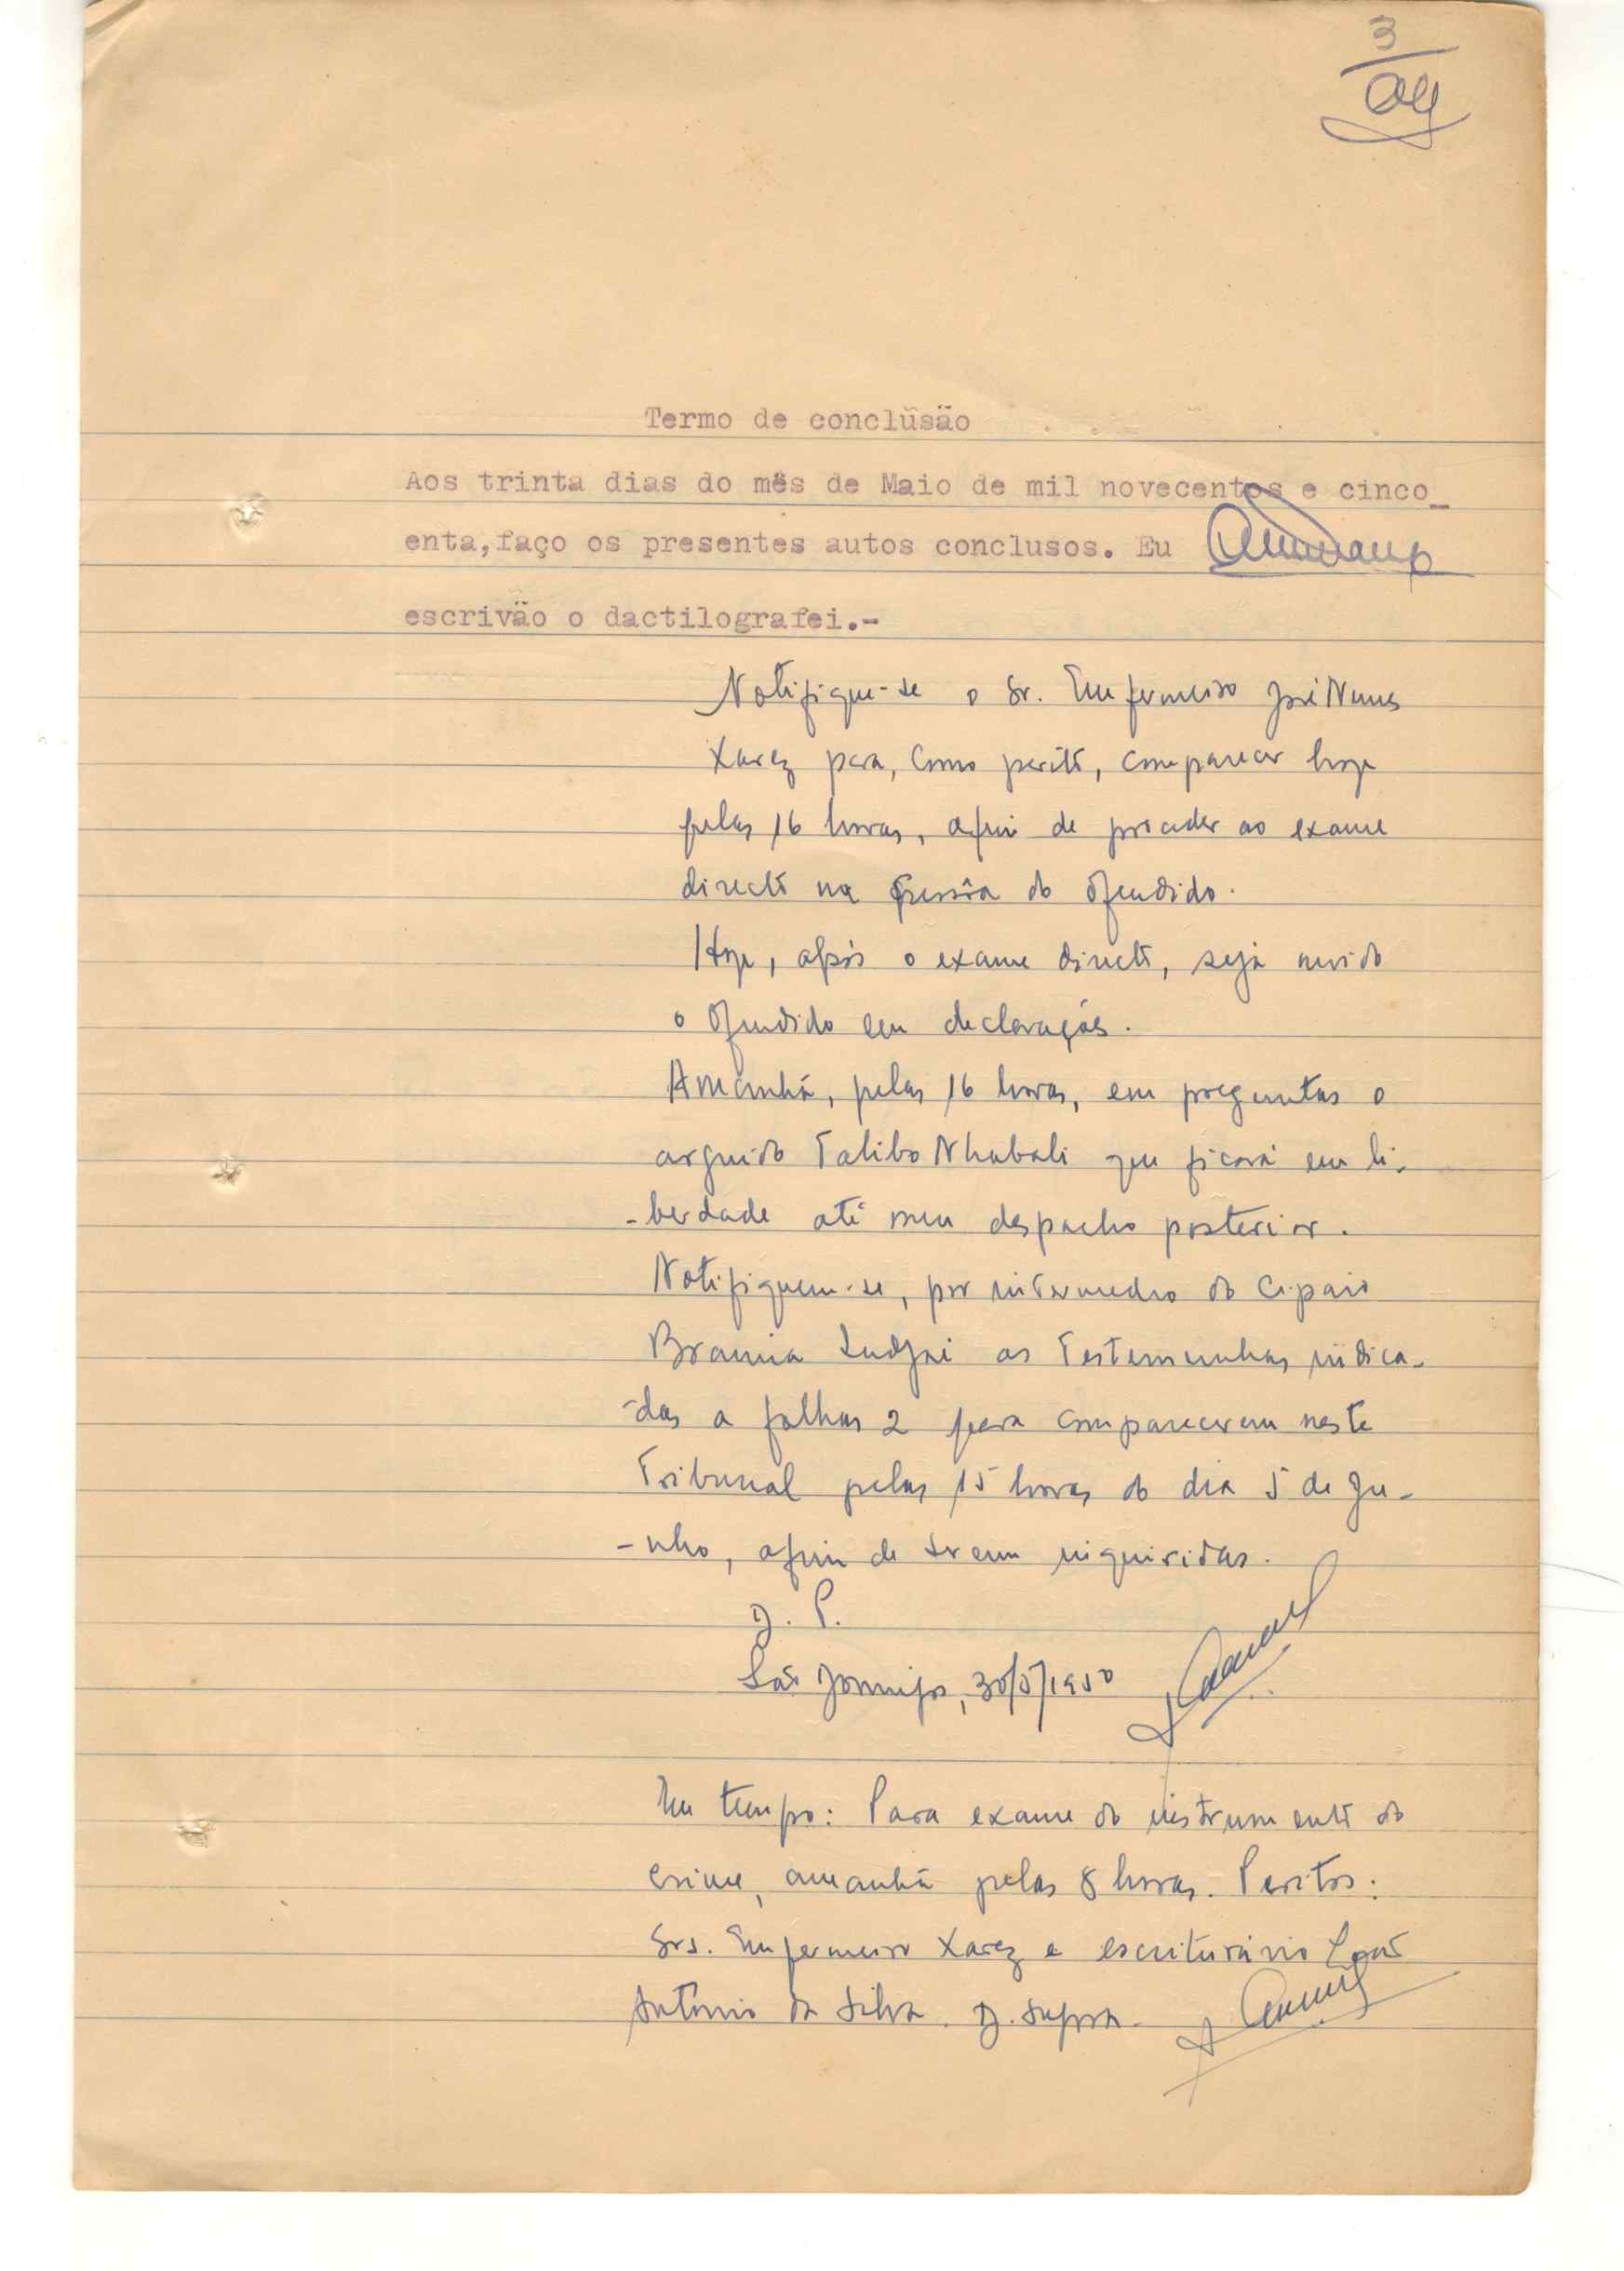 3
Termo de conclusão
Aos trinta dias do mês de Maio de mil novecentos e cinco_
enta,faço os presentes autos conclusos. Eu
escrivão o dactilografei.-
Notifique-se o Sr. Enfermeiro José Nunes
Xarez para, como perito, comparecer hoje
pelas 16 horas, afim de proceder ao exame
directo na pessôa do ofendido.
Hoje, após o exame directo, seja ouvido
o ofendido em declarações.
Amanhã, pelas 16 horas, em preguntas o
arguido Talibo Nhabali que ficará em li-
-berdade até meu despacho posterior.
Notifiquem-se, por intermedio do Cipaio
Brama as testemunhas indica-
-das a folhas 2 para comparecerem neste
Tribunal pelas 15 horas do dia 5 de Ju-
-nho, afim de serem inquiridas.
São Domingos, 30/5/1950
Em tempo: Para exame do instrumento do
crime, amanhã pelas 8 horas. Peritos:
Srs. Enfermeiro Xarez e escriturário
António da Silva. D. supra.